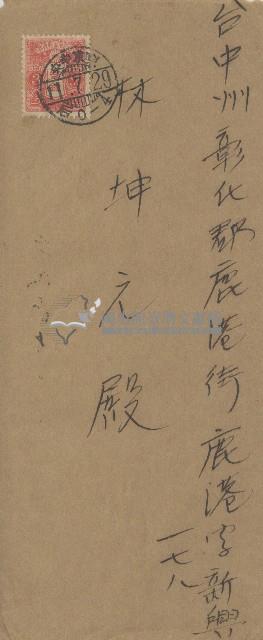 台中州彰化郡鹿港街鹿港字新興
一七八
林坤元殿
11.7.29